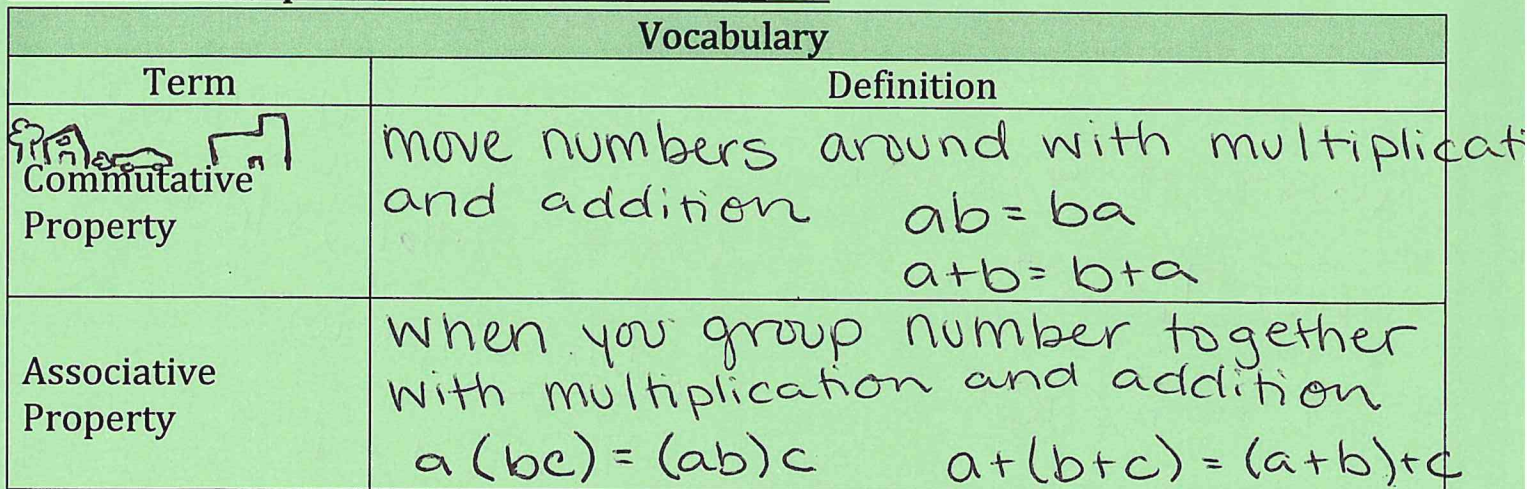 Vocabulary
Term Definition
Commutative
Property
move numbers around with multiplicati
and addition ab = ba
a+b = b+a
Associative
Property
when you group number together
with multiplication and addition
a(bc) = (ab)c a+(b+c) = (a+b)+c